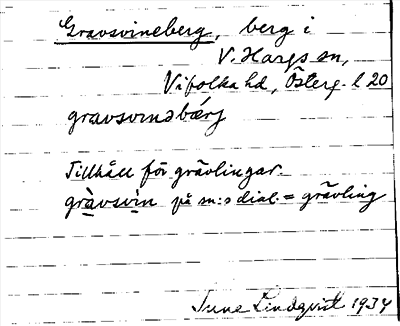 Gravsvineberg, berg i
V. Hargs sn,
Vifolka hd, Österg. l 20
gravsvinəbærj
Tillhåll för grävlingar.
gràvsvìn på sn:s dial. = grävling
Sune Lindqvist 1934